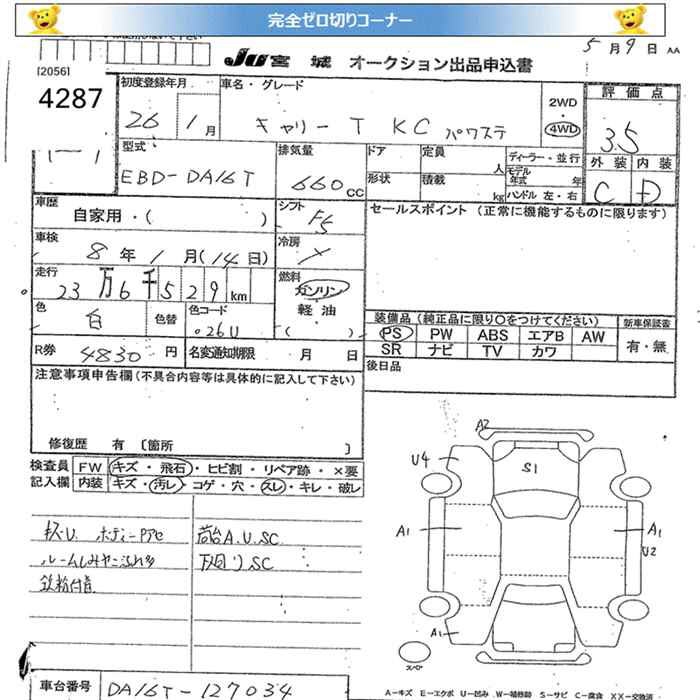 完全ゼロ切りコーナー
5月9日 AA
JU宮城 オークション出品申込書
[2056]
4287
初度登録年月
26 1月
車名・グレード
キャリー T KC パワステ
2WD
4WD
評価点
3.5
外装 内装
C D
型式
EBD-DA16T
排気量
660cc
ドア
形状
定員
人
積載
kg
ディーラー・並行
モデル年式 年
ハンドル 左・右
車歴
自家用・( )
シフト
F5
セールスポイント(正常に機能するものに限ります)
車検
8年1月(14日)
冷房
走行
23万6千529km
燃料
ガソリン
軽油
( )
色
白
色替
色コード
26U
装備品(純正品に限り〇をつけてください)
新車保証書
PS PW ABS エアB AW
SR ナビ TV カワ
有・無
R券
4830円
名変通知期限 月 日
後日品
注意事項申告欄(不具合内容等は具体的に記入して下さい)
修復歴 有 〔箇所 〕
検査員記入欄
FW キズ・飛石・ヒビ割・リペア跡・×要
内装 キズ・汚レ・コゲ・穴・スレ・キレ・破レ
キズ・U. ボディーアセ
荷台A.U.SC
下廻りSC
鉄粉付着
A2
U4
S1
A1
A1
U2
A1
スペア
車台番号
DA16T-127034
A-キズ E-エクボ U-凹み W-補修跡 S-サビ C-腐食 XX-交換済